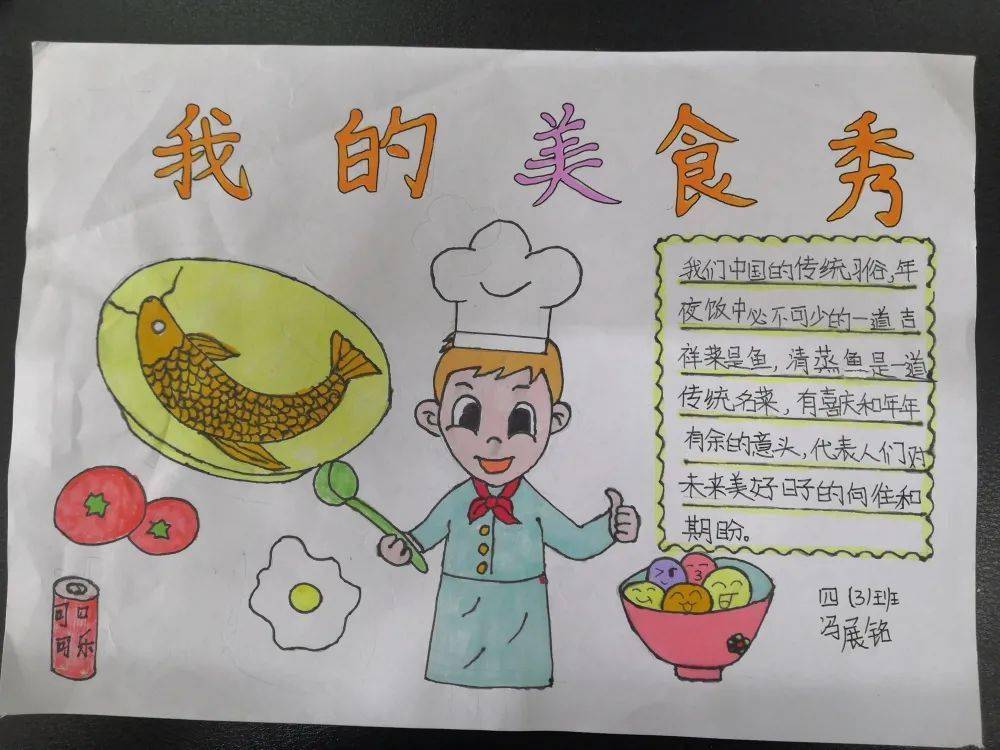 我的美食秀
我们中国的传统习俗,年
夜饭中必不可少的一道吉
祥菜是鱼,清蒸鱼是一道
传统名菜,有喜庆和年年
有余的意头,代表人们对
未来美好日子的向往和
期盼。
四(3)班
冯展铭
可口
可乐